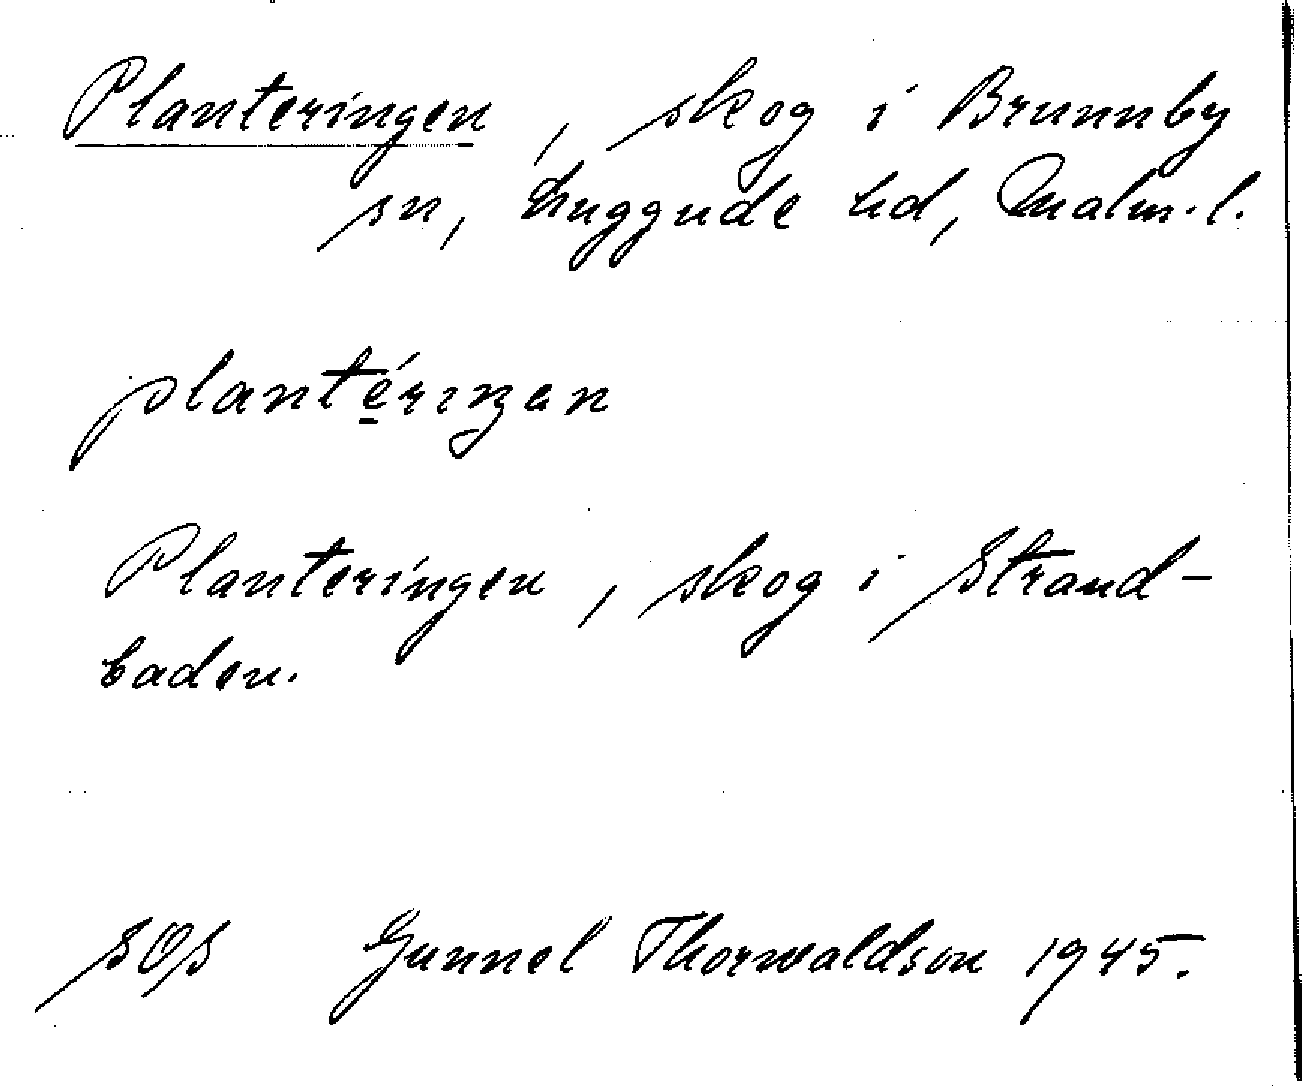 Planteringen, skog i Brunnby
sn, Luggude hd, Malm.l.
plantérıŋan
Planteringen, skog i Strand-
baden.
SOS Gunnel Thorwaldson 1945.